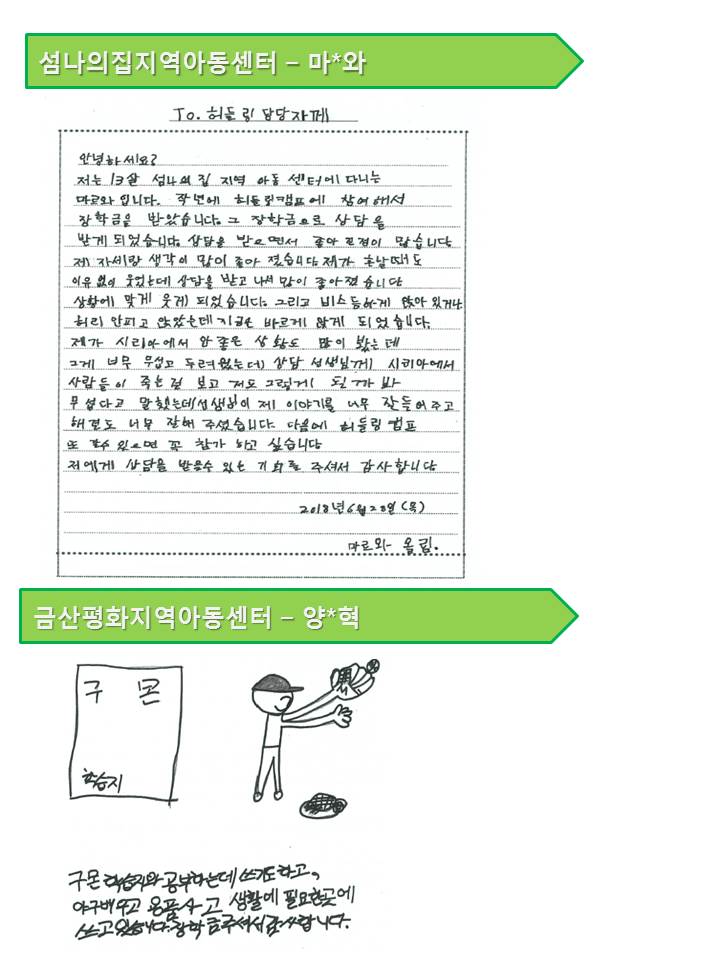 섬나의집지역아동센터 – 마*와
To. 허들링 담당자께
안녕하세요?
저는 13살 섬나의 집 지역 아동 센터에 다니는
마르와 입니다. 작년에 허들링캠프에 참여해서
장학금을 받았습니다. 그 장학금으로 상담을
받게 되었습니다. 상담을 받으면서 좋아 진점이 많습니다
제 자세랑 생각이 많이 좋아 졌습니다 제가 혼날때도
이유 없이 웃었는데 상담을 받고 나서 많이 좋아졌습니다
상황에 맞게 웃게 되었습니다. 그리고 비스듬하게 앉아 있거나
허리 안피고 앉았는데 지금은 바르게 앉게 되었습니다.
제가 시리아에서 안 좋은 상황도 많이 봤는데
그게 너무 무섭고 두려웠는데 상담 선생님께 시리아에서
사람들이 죽는걸 보고 저도 그렇게 될까 봐
무섭다고 말했는데 선생님이 제 이야기를 너무 잘들어주고
해결도 너무 잘해 주셨습니다. 다음에 허들링 캠프
또 할수 있으면 꼭 참가 하고 싶습니다
저에게 상담을 받을수 있는 기회를 주셔서 감사합니다
2018년 6월 28일 (목)
마르와 올림.
금산평화지역아동센터 – 양*혁
구 몬
학습지
구몬 학습지와 공부하는데 쓰기도하고,
야구배우고 용품사고 생활에 필요한곳에
쓰고있습니다. 장학금주셔서 감사합니다.